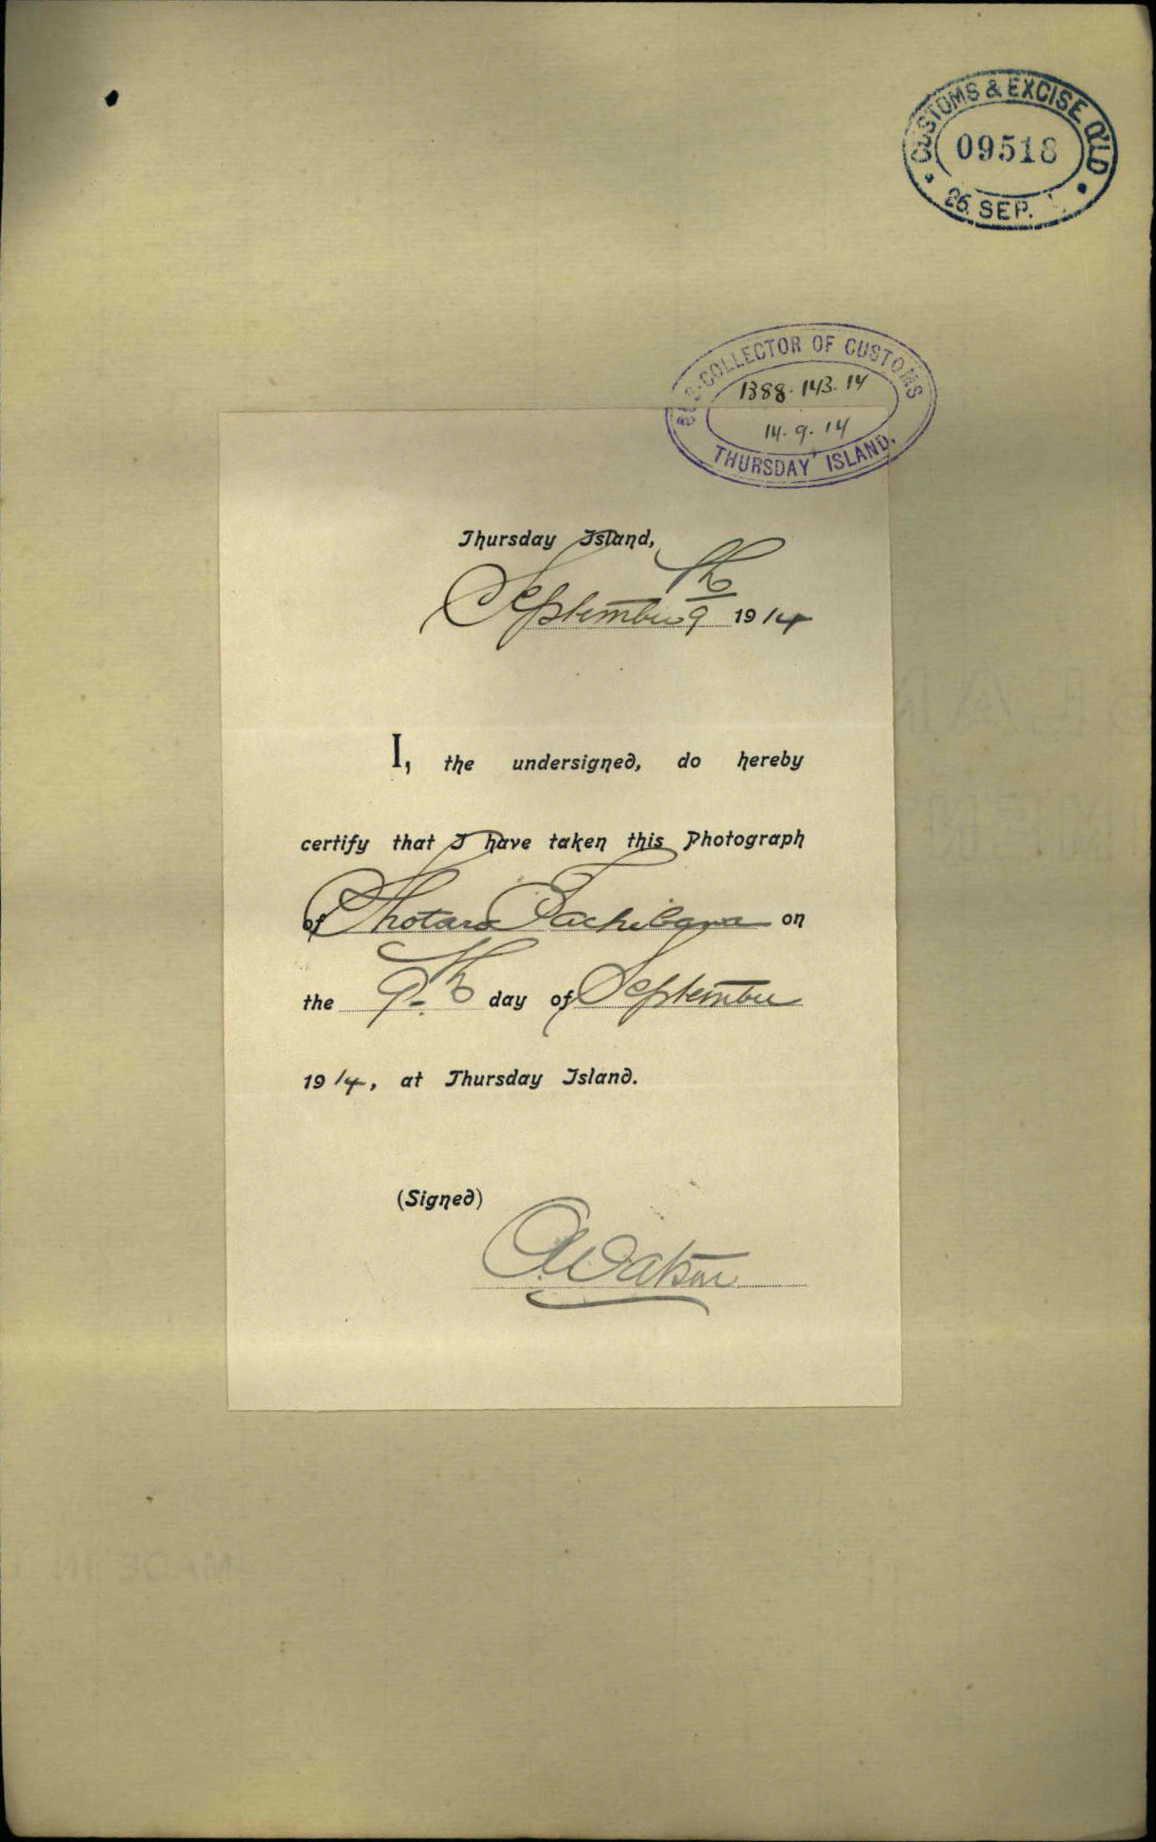 CUSTOMS & EXCISE Q'LD
09518
26. SEP.
SUB-COLLECTOR OF CUSTOMS
1388.143.14
14.9.14
THURSDAY ISLAND.
Thursday Island,
September 9th 1914
I, the undersigned, do hereby
certify that I have taken this Photograph
of Shotaro Tachibana on
the 9th day of September
1914, at Thursday Island.
(Signed)
A Watson
MADE IN